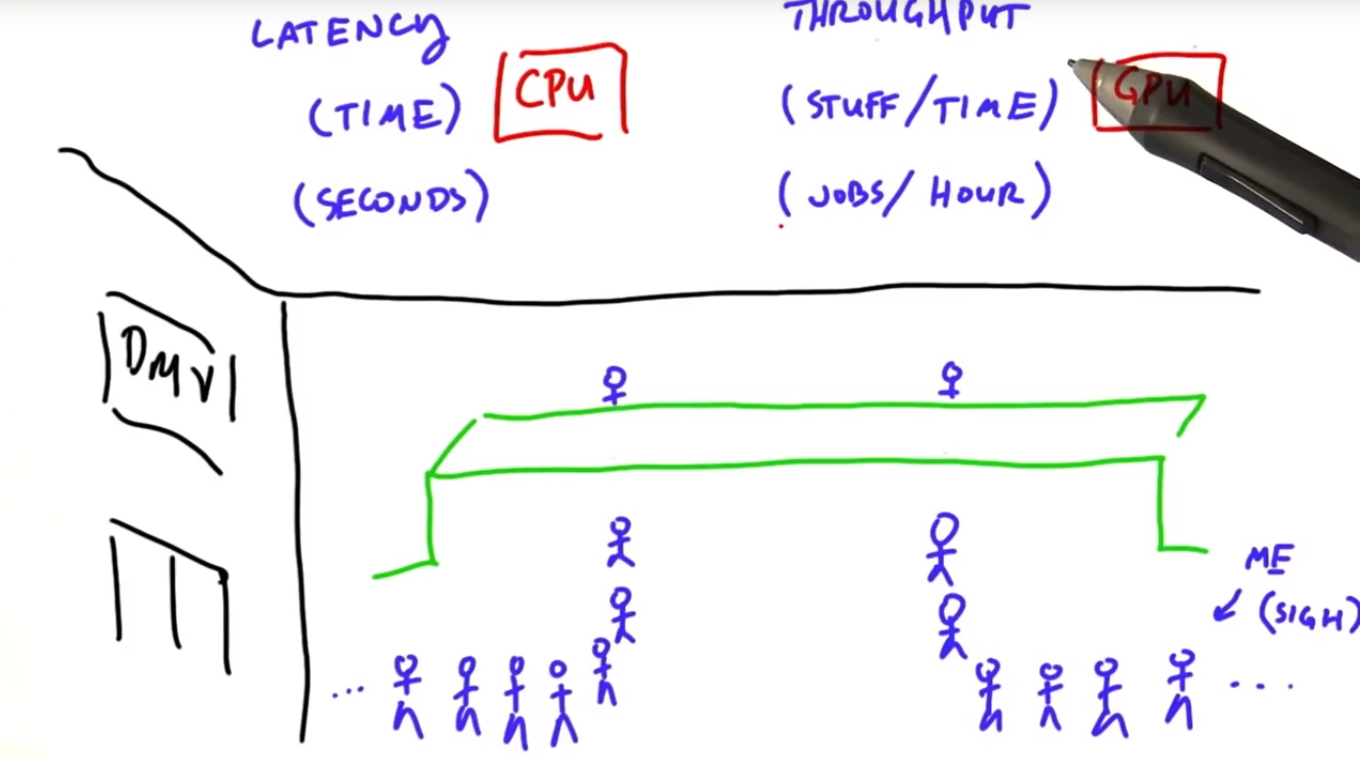 LATENCY
(TIME)
(SECONDS)
CPU
THROUGHPUT
(STUFF/TIME)
(JOBS/HOUR)
GPU
DMV
ME
(SIGH)
...
...